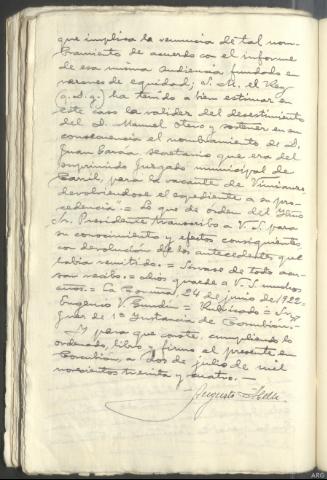 que implica la renuncia de tal nom-
bramiento de acuerdo con el informe
de esa misma Audiencia fundado en
razones de equidad; S. M. el Rey
(q. D. g.) ha tenido a bien estimar en
este caso la validez del desestimiento
del D. Manuel Otero y sostener en su
consecuencia el nombramiento de D.
Juan García secretario que era del
suprimido Juzgado municipal de
Caril, para la vacante de Vimianzo
devolviendose el expediente a su pro-
cedencia". = Lo que de orden del
Sr. Presidente transcribo a V. S. para
su conocimiento y efectos consiguientes
con devolución de los antecedentes que
había remitido. = Sirvase de todo acu-
sar recibo. = Dios guarde a V. S. muchos
años. = La Coruña, 24 de junio de 1922 =
Eugenio V. = Rubricado = Sr.
Juez de 1ª Instancia de Corcubion. -
Y para que conste, cumpliendo lo
ordenado, libro y firmo el presente en
Corcubión, a dos de julio de mil
novecientos treinta y cuatro. —
Augusto
ARG